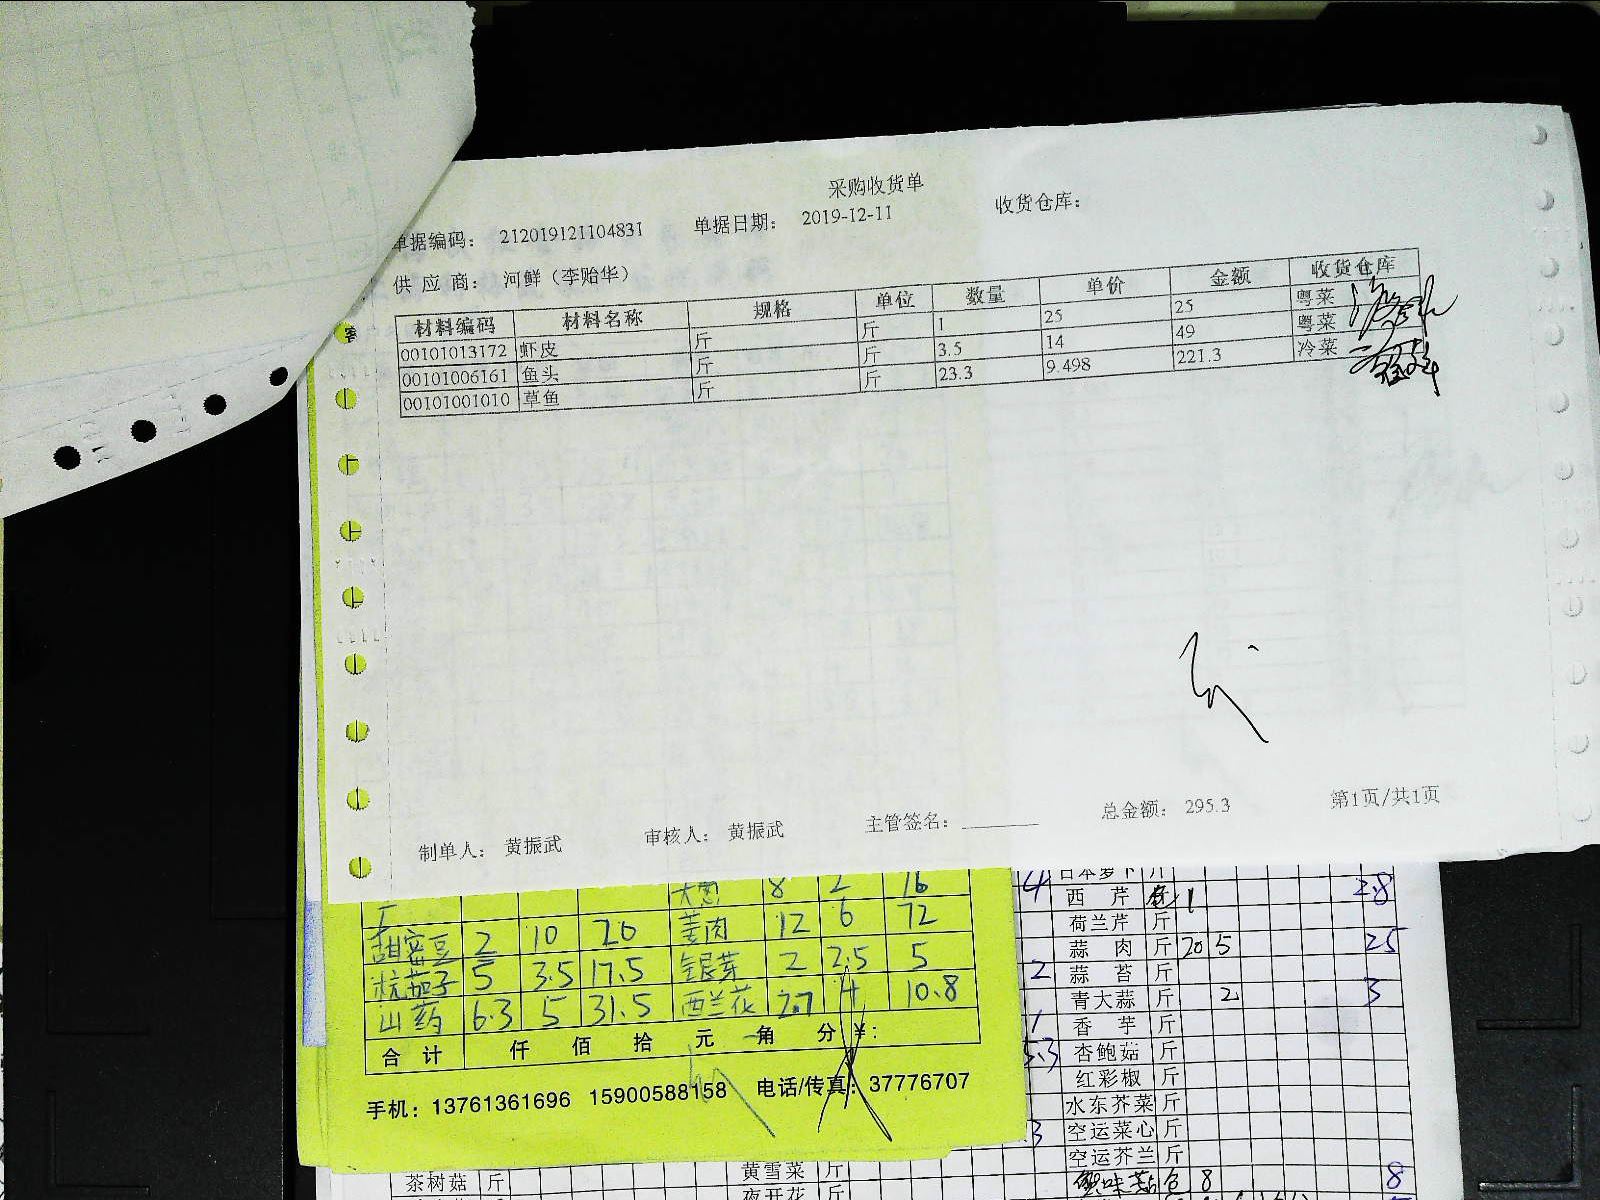 采购收货单
单据编码： 212019121104831 单据日期： 2019-12-11 收货仓库：
供 应 商： 河鲜（李贻华）
材料编码 材料名称 规格 单位 数量 单价 金额 收货仓库
00101013172 虾皮 斤 斤 1 25 25 粤菜
00101006161 鱼头 斤 斤 3.5 14 49 粤菜
00101001010 草鱼 斤 斤 23.3 9.498 221.3 冷菜
制单人： 黄振武 审核人： 黄振武 主管签名： 总金额： 295.3 第1页/共1页
8 2 16
甜蜜豆 2 10 20 姜肉 12 6 72
杭茄子 5 3.5 17.5 银芽 2 2.5 5
山药 6.3 5 31.5 西兰花 2.7 4 10.8
合 计 仟 佰 拾 元 角 分 ¥：
手机：13761361696 15900588158 电话/传真：37776707
4 日本萝卜 斤
西 芹 1 2.8
荷兰芹 斤
蒜 肉 斤 20 5 25
2 蒜 苔 斤
青大蒜 斤 2 3
1 香 芋 斤
5.3 杏鲍菇 斤
红彩椒 斤
水东芥菜 斤
3 空运菜心 斤
空运芥兰 斤
茶树菇 斤 黄雪菜 斤 蟹味菇 8 8
夜开花 斤